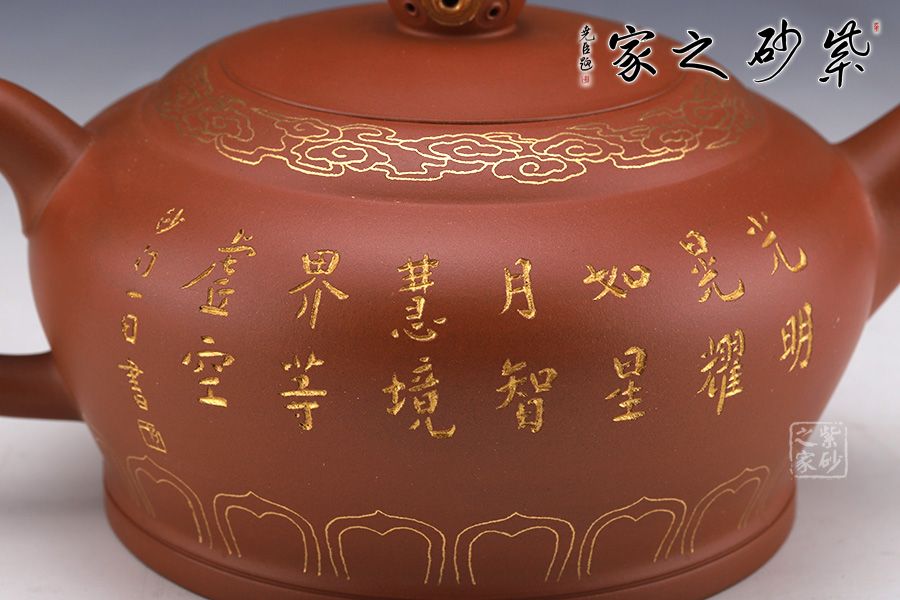 紫砂之家
光明
晃耀
如星
月智
慧境
界等
虛空
紫砂
之家